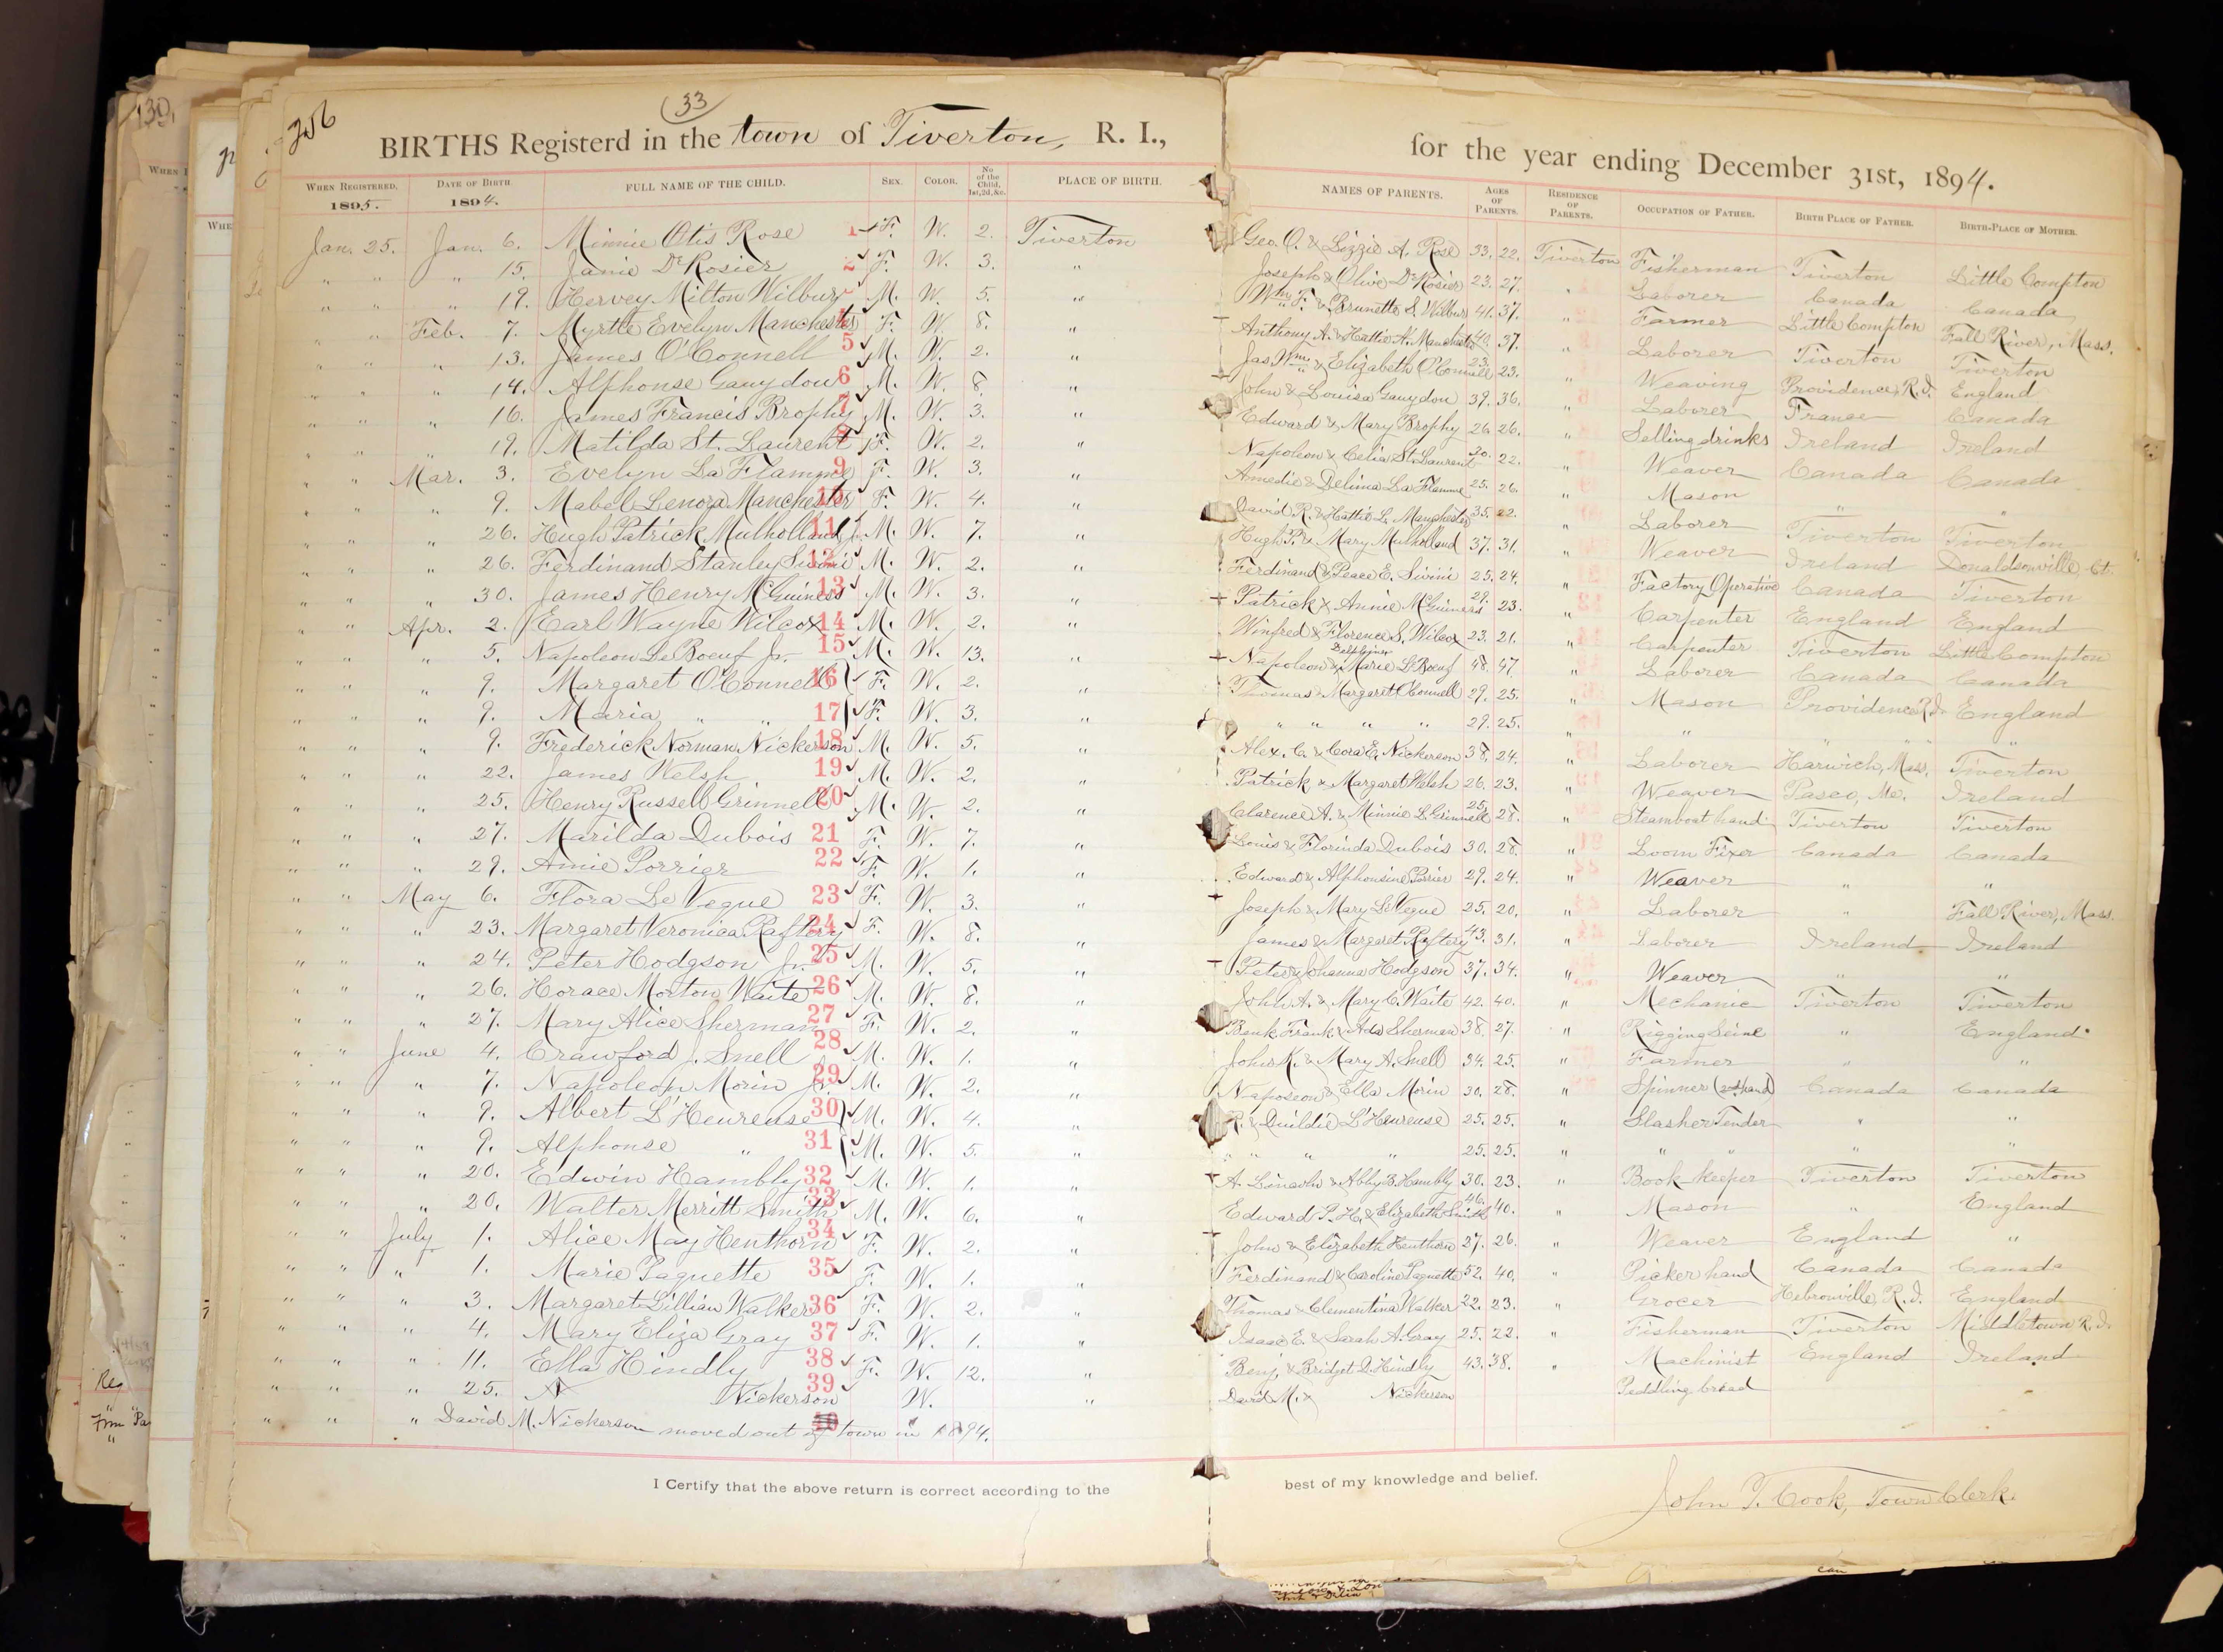 256
(33)
BIRTHS Registerd in the town of Tiverton, R. I., for the year ending December 31st, 1894.
WHEN REGISTERED, 1895. DATE OF BIRTH 1894. FULL NAME OF THE CHILD. SEX. COLOR. No of the Child, 1st, 2d, &c. PLACE OF BIRTH. NAMES OF PARENTS. AGES OF PARENTS. RESIDENCE OF PARENTS. OCCUPATION OF FATHER. BIRTH PLACE OF FATHER. BIRTH-PLACE OF MOTHER.
Jan. 25. Jan. 6. Minnie Otis Rose 1 F. W. 2. Tiverton Geo. O. & Lizzie A. Rose 33. 22. Tiverton Fisherman Tiverton Little Compton
" " " 15. Janie De Rosier 2 F. W. 3. " Joseph & Olive De Rosier 23. 27. " Laborer Canada Canada
" " " 19. Hervey Milton Wilbur M. W. 5. " Wm. F. & Brunette S. Wilbur 41. 37. " Farmer Little Compton Fall River, Mass.
" " Feb. 7. Myrtle Evelyn Manchester F. W. 8. " Anthony A. & Hattie A. Manchester 40. 37. " Laborer Tiverton Tiverton
" " " 13. James O'Connell 5 M. W. 2. " Jas. Wm. & Elizabeth O'Connell 23. 23. " Weaving Providence, R.I. England
" " " 14. Alphonse Gauydou 6 M. W. 8. " John & Louisa Gauydou 39. 36. " Laborer France Canada
" " " 16. James Francis Brophy 7 M. W. 3. " Edward & Mary Brophy 26. 26. " Selling drinks Ireland Ireland
" " " 19. Matilda St. Laurent 8 F. W. 2. " Napoleon & Celia St. Laurent 30. 22. " Weaver Canada Canada
" " Mar. 3. Evelyn La Flamme 9 F. W. 3. " Amedie & Delima La Flamme 25. 26. " Mason " "
" " " 9. Mabel Lenora Manchester 10 F. W. 4. " David R. & Hattie L. Manchester 35. 22. " Laborer Tiverton Tiverton
" " " 26. Hugh Patrick Mulholland 11 M. W. 7. " Hugh P. & Mary Mulholland 37. 31. " Weaver Ireland Donaldsonville, Ct.
" " " 26. Ferdinand Stanley Sivini 12 M. W. 2. " Ferdinand & Peace E. Sivini 25. 24. " Factory Operative Canada Tiverton
" " " 30. James Henry McGuiness 13 M. W. 3. " Patrick & Annie McGuiness 29. 23. " Carpenter England England
" " Apr. 2. Earl Wayne Wilcox 14 M. W. 2. " Winfred & Florence S. Wilcox 23. 21. " Carpenter Tiverton Little Compton
" " " 5. Napoleon Le Boeuf Jr. 15 M. W. 13. " Napoleon & Marie Le Boeuf 48. 47 " Laborer Canada Canada
" " " 9. Margaret O'Connell 16 F. W. 2. " Thomas & Margaret O'Connell 29. 25. " Mason Providence R.I. England
" " " 9. Maria " " 17 F. W. 3. " " " " " 29. 25. " " " "
" " " 9. Frederick Norman Nickerson 18 M. W. 5. " Alex. C. & Cora E. Nickerson 38. 24. " Laborer Harwich, Mass. Tiverton
" " " 22. James Welsh 19 M. W. 2. " Patrick & Margaret Welsh 26. 23. " Weaver Pasco, Me. Ireland
" " " 25. Henry Russell Grinnell 20 M. W. 2. " Clarence A. & Minnie L. Grinnell 25. 28. " Steamboat hand Tiverton Tiverton
" " " 27. Marilda Dubois 21 F. W. 7. " Louis & Florinda Dubois 30. 28. " Loom Fixer Canada Canada
" " " 29. Amie Porrier 22 F. W. 1. " Edward & Alphonsine Porrier 29. 24. " Weaver " "
" " May 6. Flora Le Vegue 23 F. W. 3. " Joseph & Mary Le Vegue 25. 20. " Laborer " Fall River, Mass.
" " " 23. Margaret Veronica Raftery 24 F. W. 8. " James & Margaret Raftery 43. 31. " Laborer Ireland Ireland
" " " 24. Peter Hodgson Jr. 25 M. W. 5. " Peter & Johanna Hodgson 37. 34. " Weaver " "
" " " 26. Horace Morton Waite 26 M. W. 8. " John A. & Mary C. Waite 42. 40. " Mechanic Tiverton Tiverton
" " " 27. Mary Alice Sherman 27 F. W. 2. " Benk. Frank & Ada Sherman 38. 27. " Rigging Seine " England
" " June 4. Crawford J. Snell 28 M. W. 1. " John K. & Mary A. Snell 34. 25. " Farmer " "
" " " 7. Napoleon Morin Jr. 29 M. W. 2. " Naposeon & Ella Morin 30. 28. " Spinner (2nd hand) Canada Canada
" " " 9. Albert L'Heureuse 30 M. W. 4. " R. & Quildie L'Heureuse 25. 25. " Slasher Tender " "
" " " 9. Alphonse " 31 M. W. 5. " " " " " 25. 25. " " " " "
" " " 20. Edwin Hambly 32 M. W. 1. " A. Lincoln & Abby B. Hambly 30. 23. " Book-keeper Tiverton Tiverton
" " " 20. Walter Merritt Smith 33 M. W. 6. " Edward P. H. & Elizabeth Smith 46. 40. " Mason " England
" " July 1. Alice May Henthorn 34 F. W. 2. " John & Elizabeth Henthorn 27. 26. " Weaver England "
" " " 1. Marie Paquette 35 F. W. 1. " Ferdinand & Caroline Paquette 52. 40. " Picker hand Canada Canada
" " " 3. Margaret Lillian Walker 36 F. W. 2. " Thomas & Clementina Walker 22. 23. " Grocer Hebronville, R.I. England
" " " 4. Mary Eliza Gray 37 F. W. 1. " Isaac E. & Sarah A. Gray 25. 22. " Fisherman Tiverton Middletown R.I.
" " " 11. Ella Hindly 38 F. W. 12. " Benj. & Bridget D. Hindly 43. 38. " Machinist England Ireland
" " " 25. Nickerson 39 W. " David M. & Nickerson Peddling bread
" " " David M. Nickerson moved out of town in 1894.
I Certify that the above return is correct according to the best of my knowledge and belief.
John T. Cook, Town Clerk.